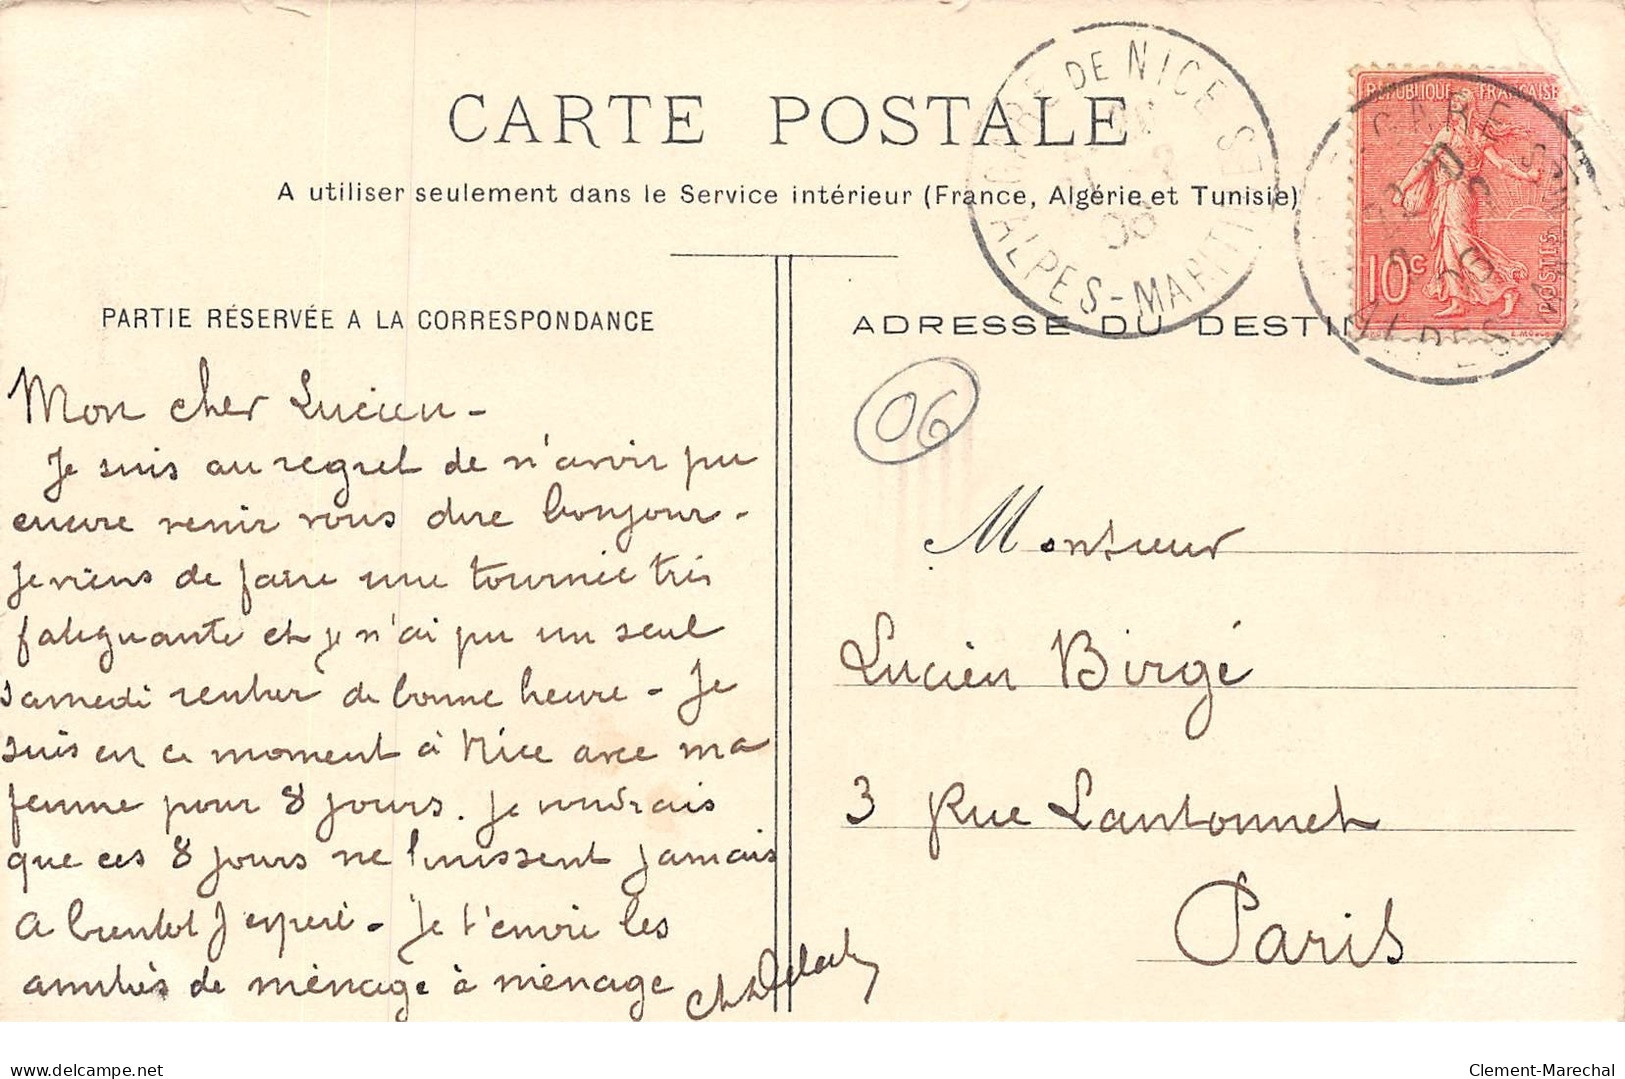 CARTE POSTALE
A utiliser seulement dans le Service intérieur (France, Algérie et Tunisie)
GARE DE NICE
ALPES-MARITIMES
RÉPUBLIQUE FRANÇAISE
10c
POSTES
GARE
PARTIE RÉSERVÉE A LA CORRESPONDANCE
Mon cher Lucien -
Je suis au regret de n'avoir pu
encore venir vous dire bonjour -
Je viens de faire une tournée très
fatiguante et je n'ai pu un seul
samedi rentrer de bonne heure - Je
suis en ce moment à Nice avec ma
femme pour 8 jours. Je voudrais
que ces 8 jours ne finissent jamais
A bientot J'espère - Je t'envoie les
amitiés de ménage à ménage
ADRESSE DU DESTIN
06
Monsieur
Lucien Birgé
3 Rue Lantonnet
Paris
www.delcampe.net
Clement-Marechal